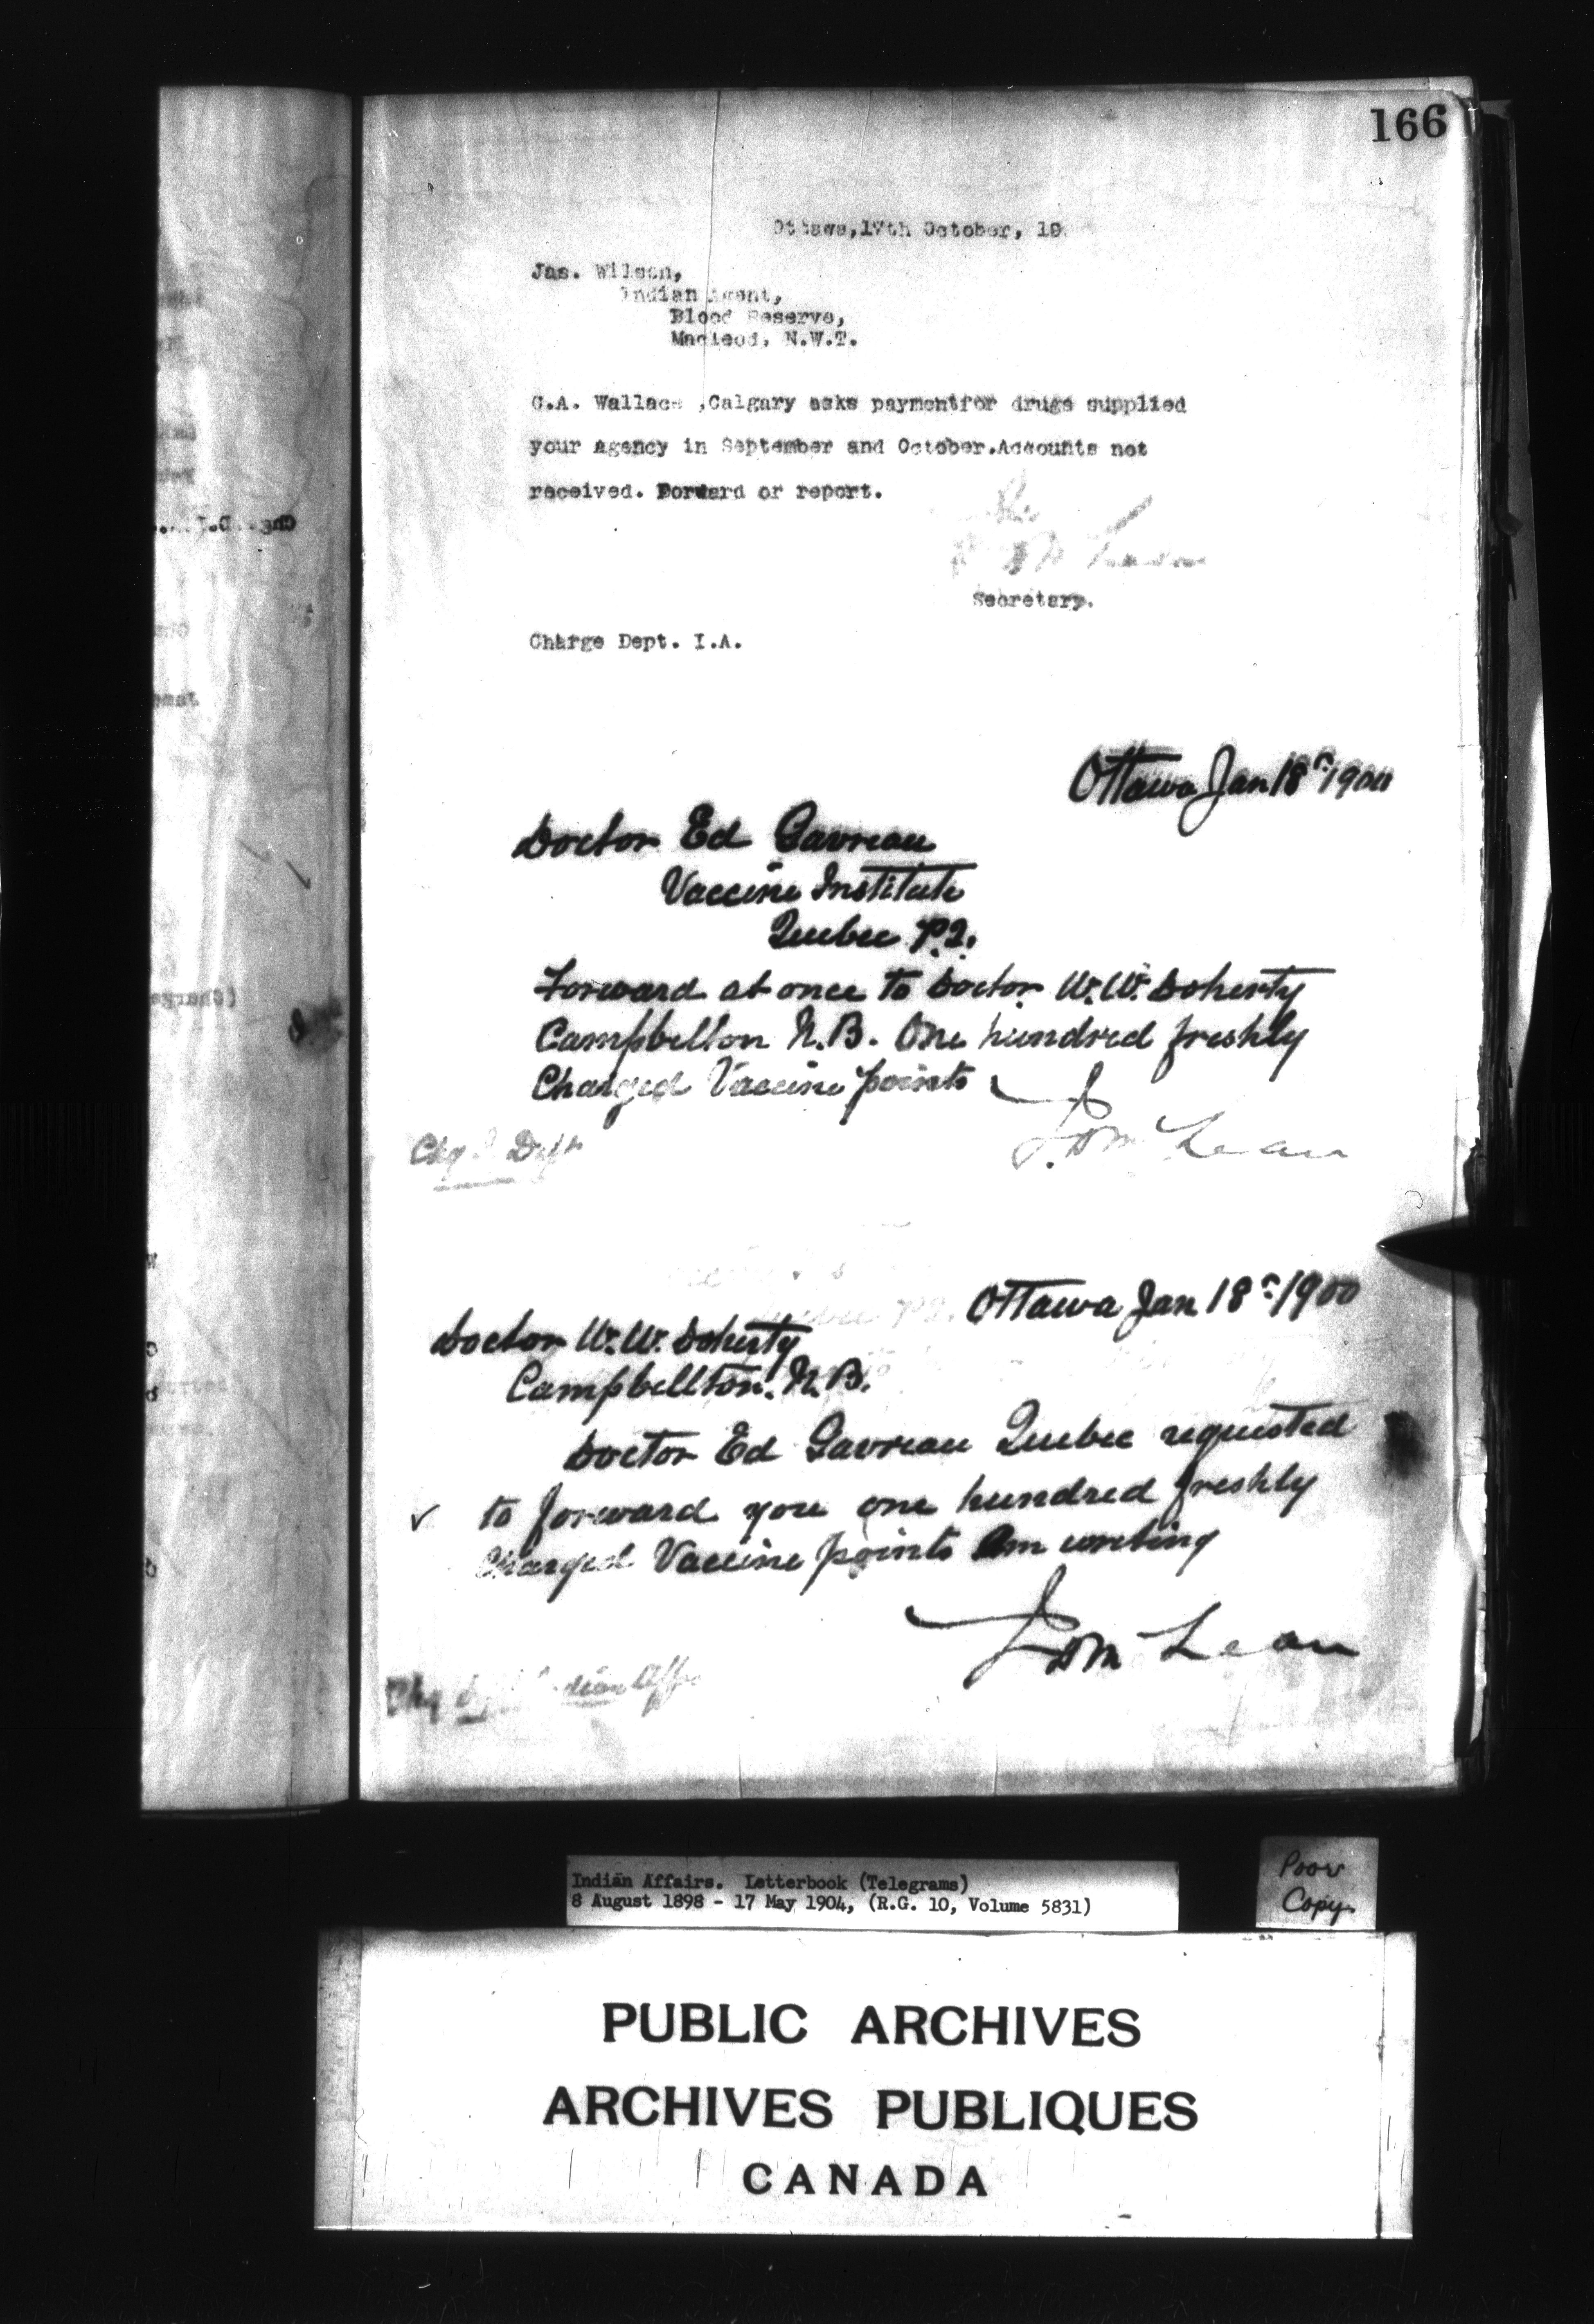 166
Ottawa, 17th October, 19
Jas. Wilson,
Indian Agent,
Blood Reserve,
Macleod, N.W.T.
C.A. Wallace ,Calgary asks paymentfor drugs supplied
your agency in September and October.Accounts not
received. Forward or report.
Secretary.
Charge Dept. I.A.
Ottawa Jan 18th 1900
Doctor Ed Gavreau
Vaccine Institute
Quebec P.Q.
Forward at once to Doctor W.W. Doherty
Campbellton N.B. One hundred freshly
Charged Vaccine points
J.D. McLean
Chg Dept
Ottawa Jan 18th 1900
Doctor W.W. Doherty
Campbellton. N.B.
Doctor Ed Gavreau Quebec requested
✓ to forward you one hundred freshly
Charged Vaccine points Am writing
J D McLean
Chg Indian Affrs
Indian Affairs. Letterbook (Telegrams)
8 August 1898 - 17 May 1904, (R.G. 10, Volume 5831)
Poor
Copy
PUBLIC ARCHIVES
ARCHIVES PUBLIQUES
CANADA